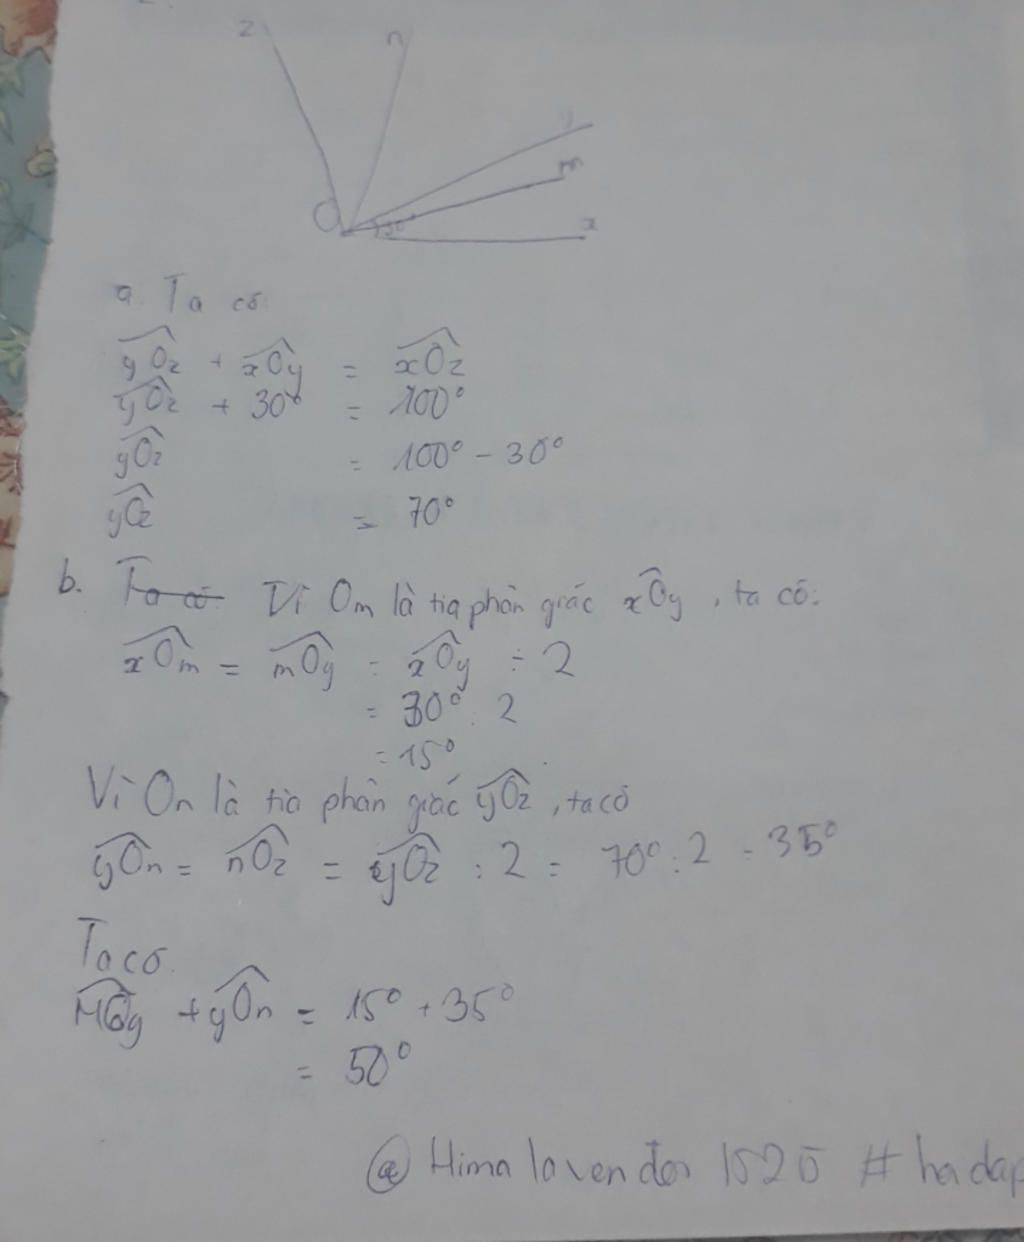 z n
y
m
O 30° x
a. Ta có
yOz + xOy = xOz
yOz + 30° = 100°
yOz = 100° - 30°
yOz = 70°
b. Ta có Vì Om là tia phân giác xOy, ta có:
xOm = mOy = xOy ÷ 2
= 30° : 2
= 15°
Vì On là tia phân giác yOz, ta có
yOn = nOz = yOz : 2 = 70° : 2 = 35°
Ta có
MOy + yOn = 15° + 35°
= 50°
@ Himalavender 1525 #